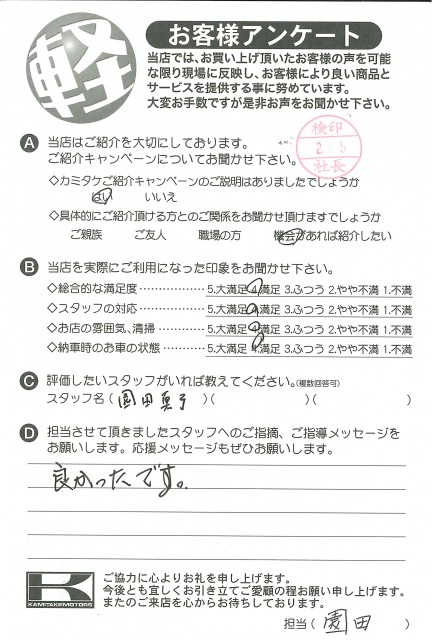 軽
お客様アンケート
当店では、お買い上げ頂いたお客様の声を可能
な限り現場に反映し、お客様により良い商品と
サービスを提供する事に努めています。
大変お手数ですが是非お声をお聞かせ下さい。
A 当店はご紹介を大切にしております。
ご紹介キャンペーンについてお聞かせ下さい。
検印
2.5
社長
◇カミタケご紹介キャンペーンのご説明はありましたでしょうか
はい いいえ
◇具体的にご紹介頂ける方とのご関係をお聞かせ頂けますでしょうか
ご親族 ご友人 職場の方 機会があれば紹介したい
B 当店を実際にご利用になった印象をお聞かせ下さい。
◇総合的な満足度 ………………… 5.大満足 4.満足 3.ふつう 2.やや不満 1.不満
◇スタッフの対応 ………………… 5.大満足 4.満足 3.ふつう 2.やや不満 1.不満
◇お店の雰囲気、清掃 …………… 5.大満足 4.満足 3.ふつう 2.やや不満 1.不満
◇納車時のお車の状態 …………… 5.大満足 4.満足 3.ふつう 2.やや不満 1.不満
C 評価したいスタッフがいれば教えてください。(複数回答可)
スタッフ名 ( 園田 )( )( )
D 担当させて頂きましたスタッフへのご指摘、ご指導メッセージを
お願いします。応援メッセージもぜひお願いします。
良かったです。
KAMITAKE MOTORS
ご協力に心よりお礼を申し上げます。
今後とも宜しくお引き立てご愛顧の程お願い申し上げます。
またのご来店を心からお待ちしております。
担当 ( 園田 )